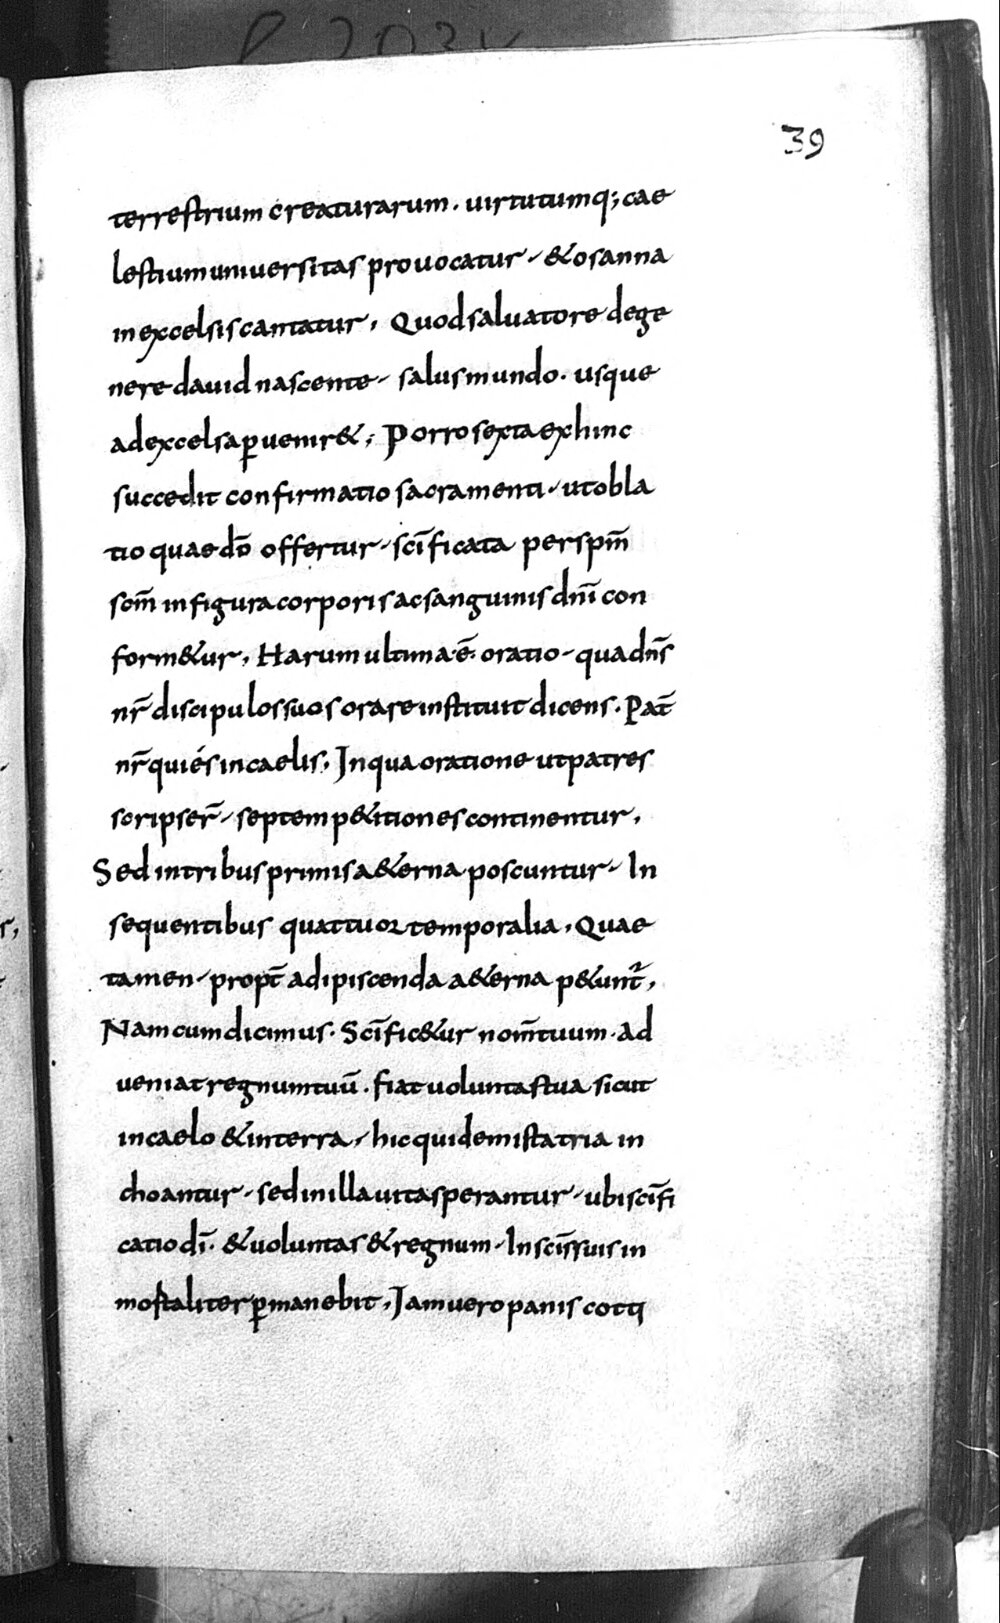 39
terrestrium creaturarum. uirtutumq; cae
lestium uniuersitas prouocatur, & osanna
in excelsis cantatur, Quod saluatore de ge
nere dauid nascente, salus mundo. usque
ad excelsa ꝑuenir&; Porro sexta ex hinc
succedit confirmatio sacramenti, ut obla
tio quae dō offertur, scīficata per spm̄
scm̄ in figura corporis ac sanguinis dnī con
form&ur, Harum ultima ē. oratio, qua dns̄
nr̄ discipulos suos orare instituit dicens. Pat̄
nr̄ qui és in caelis, In qua oratione ut patres
scripser̄, septem p&itiones continentur,
Sed in tribus primis a&erna poscuntur, In
sequentibus quattuor temporalia, Quae
tamen, propt̄ adipiscenda a&erna p&unt̄,
Nam cum dicimus. Scīfic&ur nom̄ tuum. ad
ueniat regnum tuū. fiat uoluntas tua sicut
in caelo & in terra, hic quidem ista tria in
choantur, sed in illa uita sperantur, ubi scīfi
catio dī. & uoluntas & regnum, In scīs suis in
mortaliter ꝑmanebit, Iam uero panis cotti